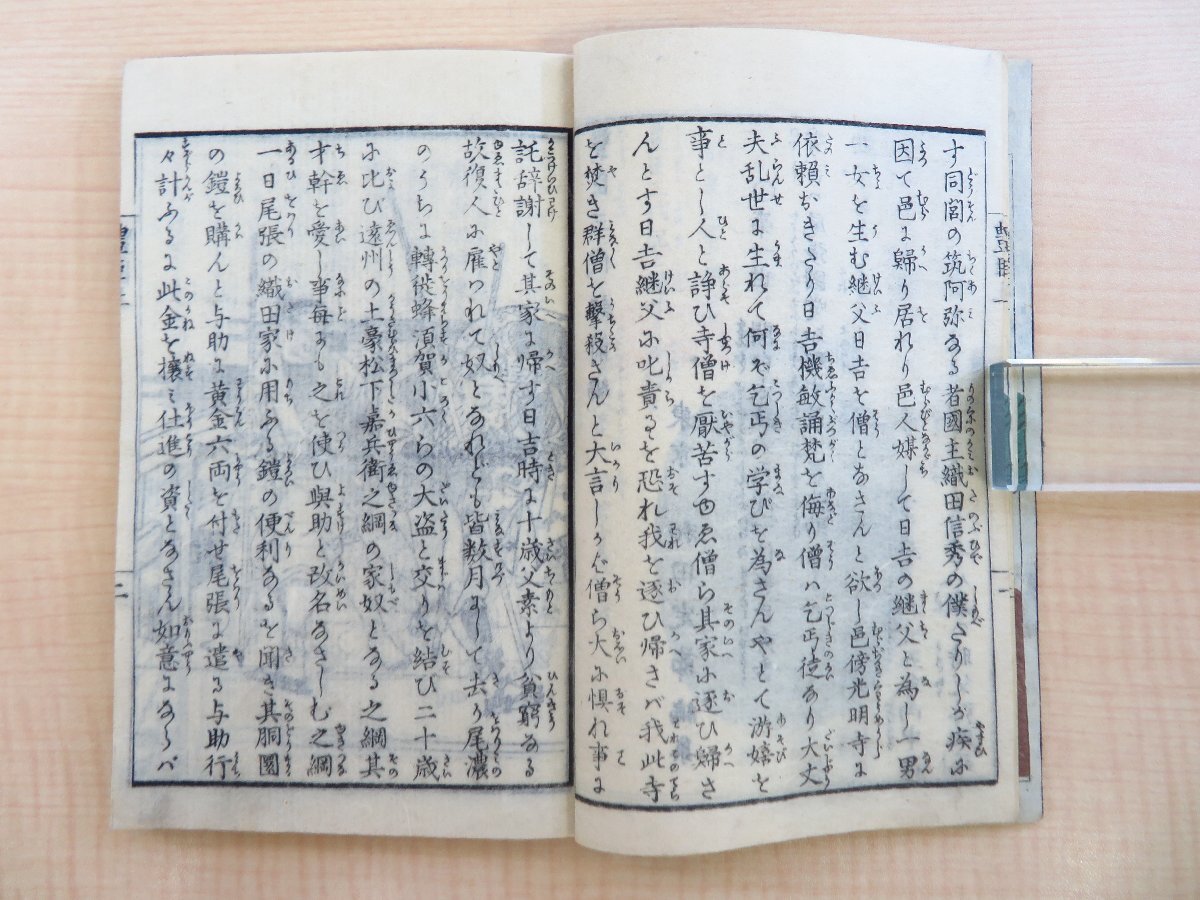 す同閭の筑阿弥なる者國主織田信秀の僕たりしが疾に
因て邑に歸り居れり邑人媒して日吉の継父と為し一男
一女を生む継父日吉を僧となさんと欲し邑傍光明寺に
依頼おきたり日吉機敏誦梵を侮り僧ハ乞丐徒なり大丈
夫乱世に生れて何ぞ乞丐の学びを為さんやとて游嬉を
事とし人と諍ひ寺僧を厭苦すゆゑ僧ら其家に逐ひ歸さ
んとす日吉継父に叱責るを恐れ我を逐ひ帰さバ我此寺
を焚き群僧を撃殺さんと大言しかバ僧ら大に惧れ事に
託辞謝して其家に帰す日吉時に十歳父素より貧窮なる
故復人に雇ハれて奴となれども皆数月にして去り尾濃
のうちに轉徙蜂須賀小六らの大盗と交りを結び二十歳
に比び遠州の土豪松下嘉兵衛之綱の家奴となる之綱其
才幹を愛し事毎にも之を使ひ與助と改名なさしむ之綱
一日尾張の織田家に用ふる鎧の便利なるを聞き其胴圏
の鎧を購んと与助に黄金六両を付せ尾張に遣る与助行
々計ふるに此金を攘ミ仕進の資となさん如意にならバ